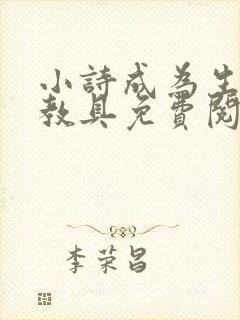 小詩成為生
教具免費閱
李荣昌